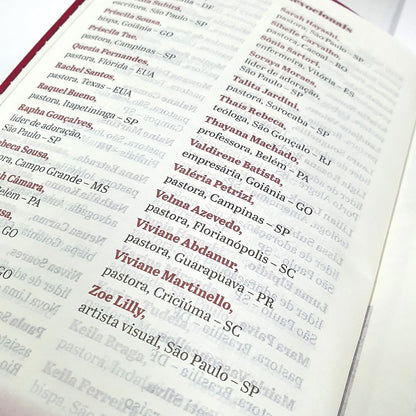 Subirá,
pastora, São Paulo – SP
Priscila Sousa,
bispa, Goiânia – GO
Priscila Tae,
pastora, Campinas – SP
Quezia Fernandes,
pastora, Flórida – EUA
Rachel Santos,
pastora, Texas – EUA
Raquel Bueno,
pastora, Itapetininga – SP
Rapha Gonçalves,
líder de adoração,
São Paulo – SP
Sousa,
pastora, Campo Grande – MS
Câmara,
Belém – PA
devocionais
Sarah Hayashi,
pastora, São Paulo – SP
Sibelle Carvalho,
pastora, Cacoal – RO
Sônia Sartori,
enfermeira, Vitória – ES
Soraya Moraes,
líder de adoração,
São Paulo – SP
Talita Jardini,
pastora, Sorocaba – SP
Thaís Rebeca,
teóloga, São Gonçalo – RJ
Thayana Machado,
professora, Belém – PA
Valdirene Batista,
empresária, Goiânia – GO
Valéria Petrizi,
pastora, Campinas – SP
Velma Azevedo,
pastora, Florianópolis – SC
Viviane Abdanur,
pastora, Guarapuava – PR
Viviane Martinello,
pastora, Criciúma – SC
Zoe Lilly,
artista visual, São Paulo – SP